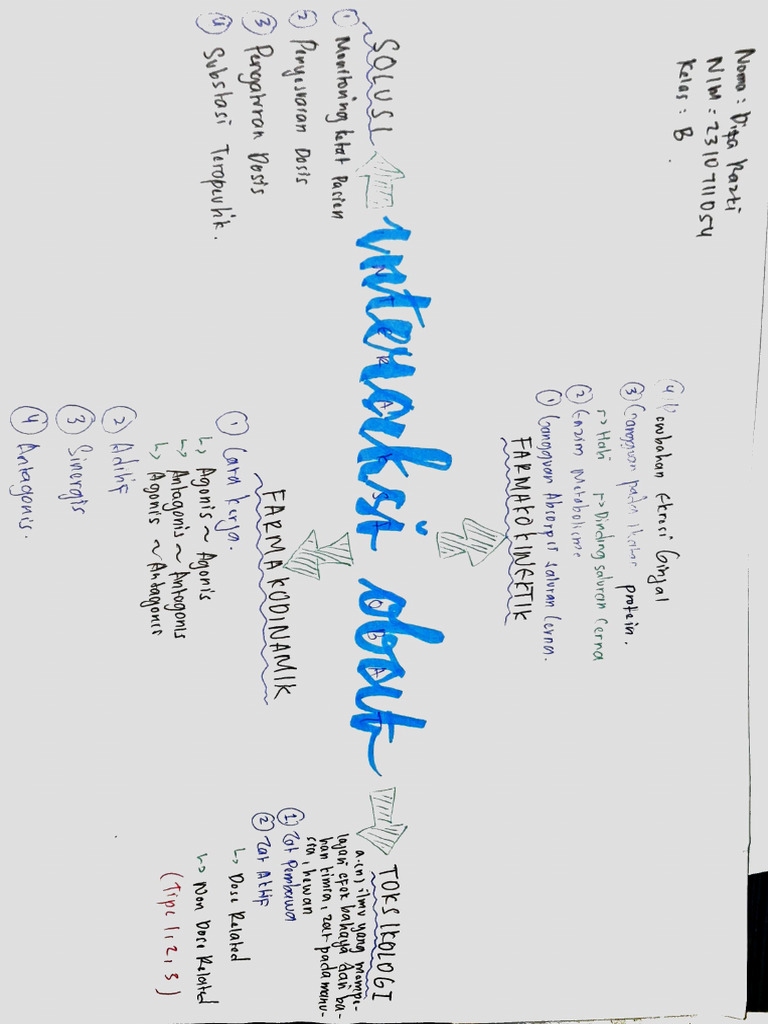 Nama : Diga Razti
NIM : 2310711054
Kelas : B
④ Perubahan Ekresi Ginjal
③ Gangguan pada ikatan protein.
② Enzim Metabolisme
↳ Hati ↳ Dinding saluran Cerna
① Gangguan Absorpsi saluran Cerna.
FARMAKOKINEKTIK
SOLUSI
① Monitoring ketat Pasien
② Penyesuaian Dosis
③ Pengaturan Dosis
④ Substasi Terapeutik.
interaksi obat
INTERAKSI OBAT
TOKSIKOLOGI
a.(n) ilmu yang mempe-
lajari efek bahaya dari ba-
han kimia, zat pada manu-
sia, hewan
① Zat Pembawa
② Zat Aktif
↳ Dose Related
↳ Non Dose Related
(Tipe 1, 2, 3)
FARMAKODINAMIK
① Cara kerja.
↳ Agonis ~ Agonis
↳ Antagonis ~ Antagonis
↳ Agonis ~ Antagonis
② Aditif
③ Sinergis
④ Antagonis.